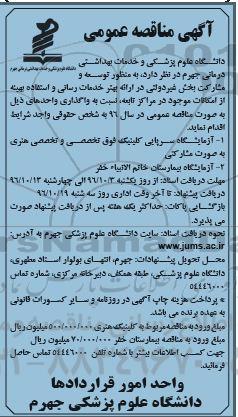 آگهی مناقصه عمومی
دانشگاه علوم پزشکی و خدمات بهداشتی درمانی جهرم
دانشگاه علوم پزشکی و خدمات بهداشتی
درمانی جهرم در نظر دارد، به منظور توسعه و
مشارکت بخش غیردولتی در ارائه بهتر خدمات رسانی و استفاده بهینه
از امکانات موجود در مراکز تابعه، نسبت به واگذاری واحدهای ذیل
به صورت مناقصه عمومی در سال ۹۶ به شخص حقوقی واجد شرایط
اقدام نماید.
۱- آزمایشگاه سرپایی کلینیک فوق تخصصی و تخصصی هنری
به صورت مشارکتی
۲- آزمایشگاه بیمارستان خاتم الانبیاء خفر
مهلت دریافت اسناد: از روز یکشنبه ۹۶/۱۰/۳ الی چهارشنبه ۹۶/۱۰/۱۳
دریافت پیشنهاد: تا آخر وقت اداری روز سه شنبه ۹۶/۱۰/۱۹
بازگشایی پاکات: حداکثر یک هفته پس از دریافت پیشنهاد صورت
می پذیرد.
نحوه دریافت اسناد: سایت دانشگاه علوم پزشکی جهرم به آدرس:
www.jums.ac.ir
محل تحویل پیشنهادات: جهرم، انتهای بولوار استاد مطهری،
دانشگاه علوم پزشکی، طبقه همکف، دبیرخانه مرکزی، شماره تماس
۵۴۴۴۶۰۰۰
* پرداخت هزینه چاپ آگهی در روزنامه و سایر کسورات قانونی
به عهده برنده می باشد.
مبلغ ورود به مناقصه مربوط به کلینیک هنری ۵۰۰/۰۰۰/۰۰۰ میلیون ریال
مبلغ ورود به مناقصه بیمارستان خفر ۷۰/۰۰۰/۰۰۰ میلیون ریال
جهت کسب اطلاعات بیشتر با شماره تلفن ۵۴۴۴۶۰۰۰ تماس حاصل
فرمائید.
واحد امور قراردادها
دانشگاه علوم پزشکی جهرم